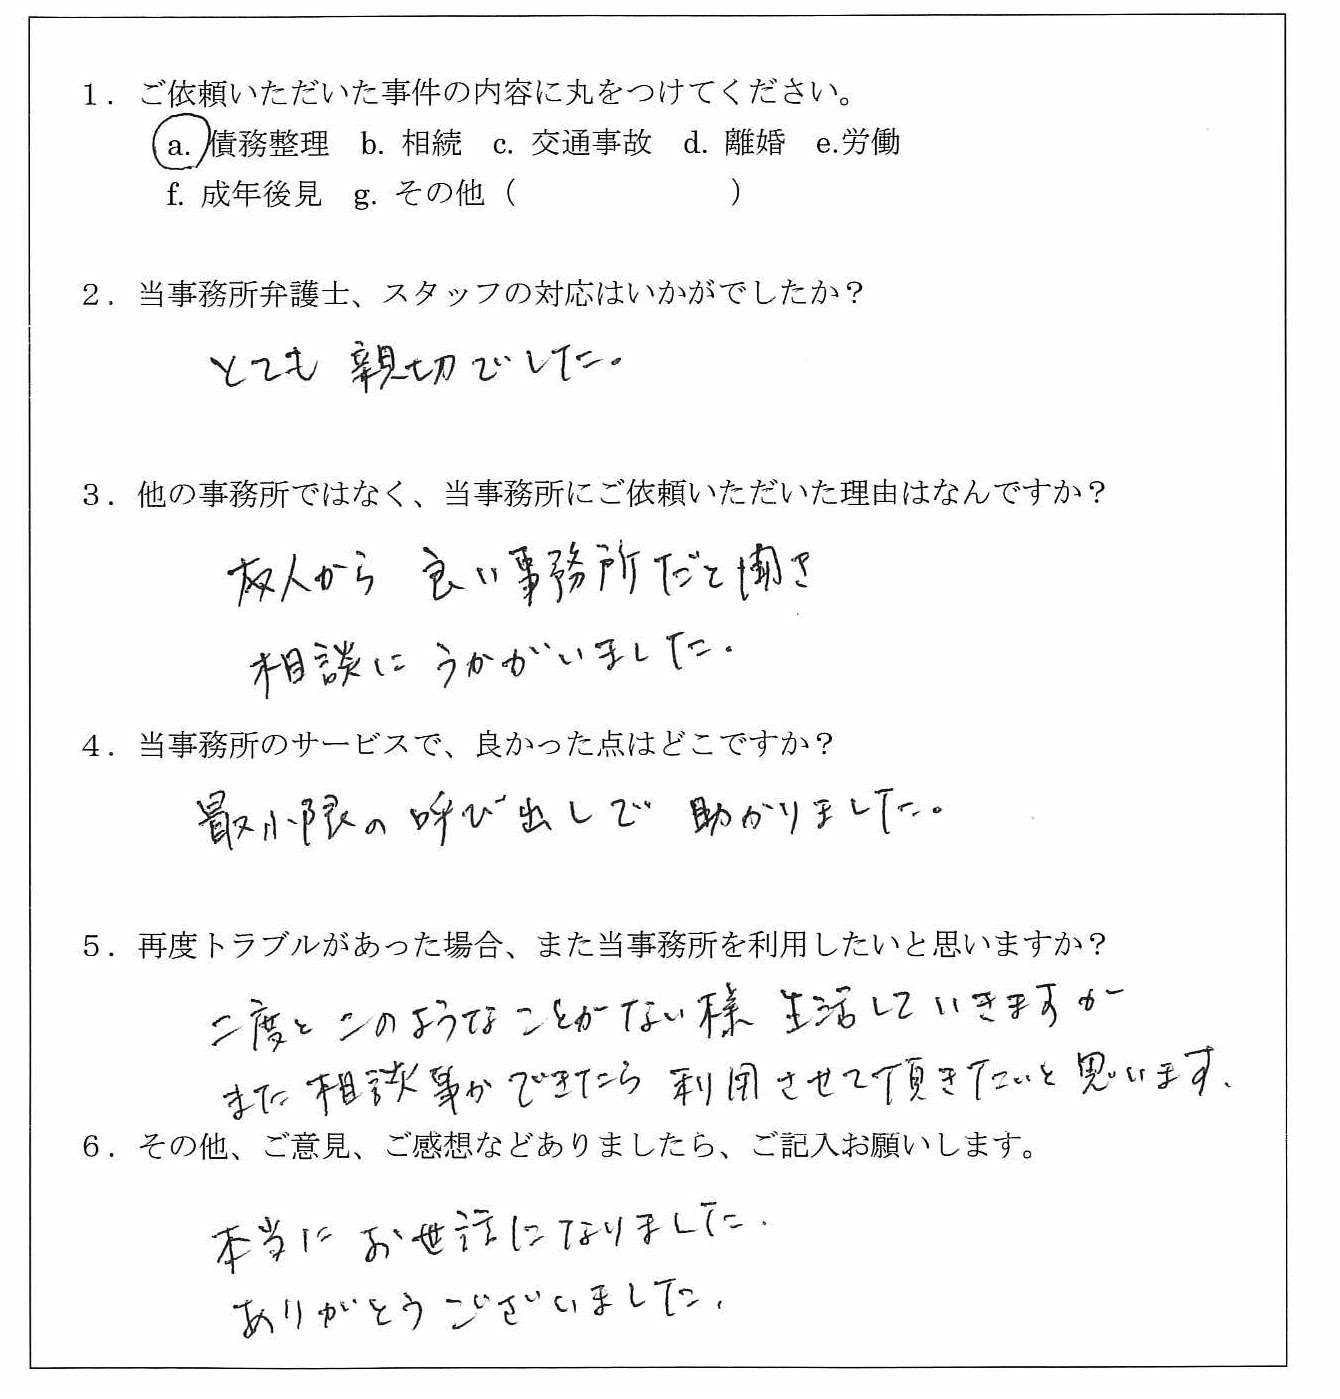 １．ご依頼いただいた事件の内容に丸をつけてください。
a. 債務整理　b. 相続　c. 交通事故　d. 離婚　e.労働
f. 成年後見　g. その他（　　　　　　　）
２．当事務所弁護士、スタッフの対応はいかがでしたか？
とても 親切でした。
３．他の事務所ではなく、当事務所にご依頼いただいた理由はなんですか？
友人から 良い事務所だと聞き
相談に うかがいました。
４．当事務所のサービスで、良かった点はどこですか？
最小限の 呼び出しで 助かりました。
５．再度トラブルがあった場合、また当事務所を利用したいと思いますか？
二度と このようなことがない様 生活していきますが
また 相談事ができたら 利用させて頂きたいと思います。
６．その他、ご意見、ご感想などありましたら、ご記入お願いします。
本当に お世話になりました。
ありがとうございました。